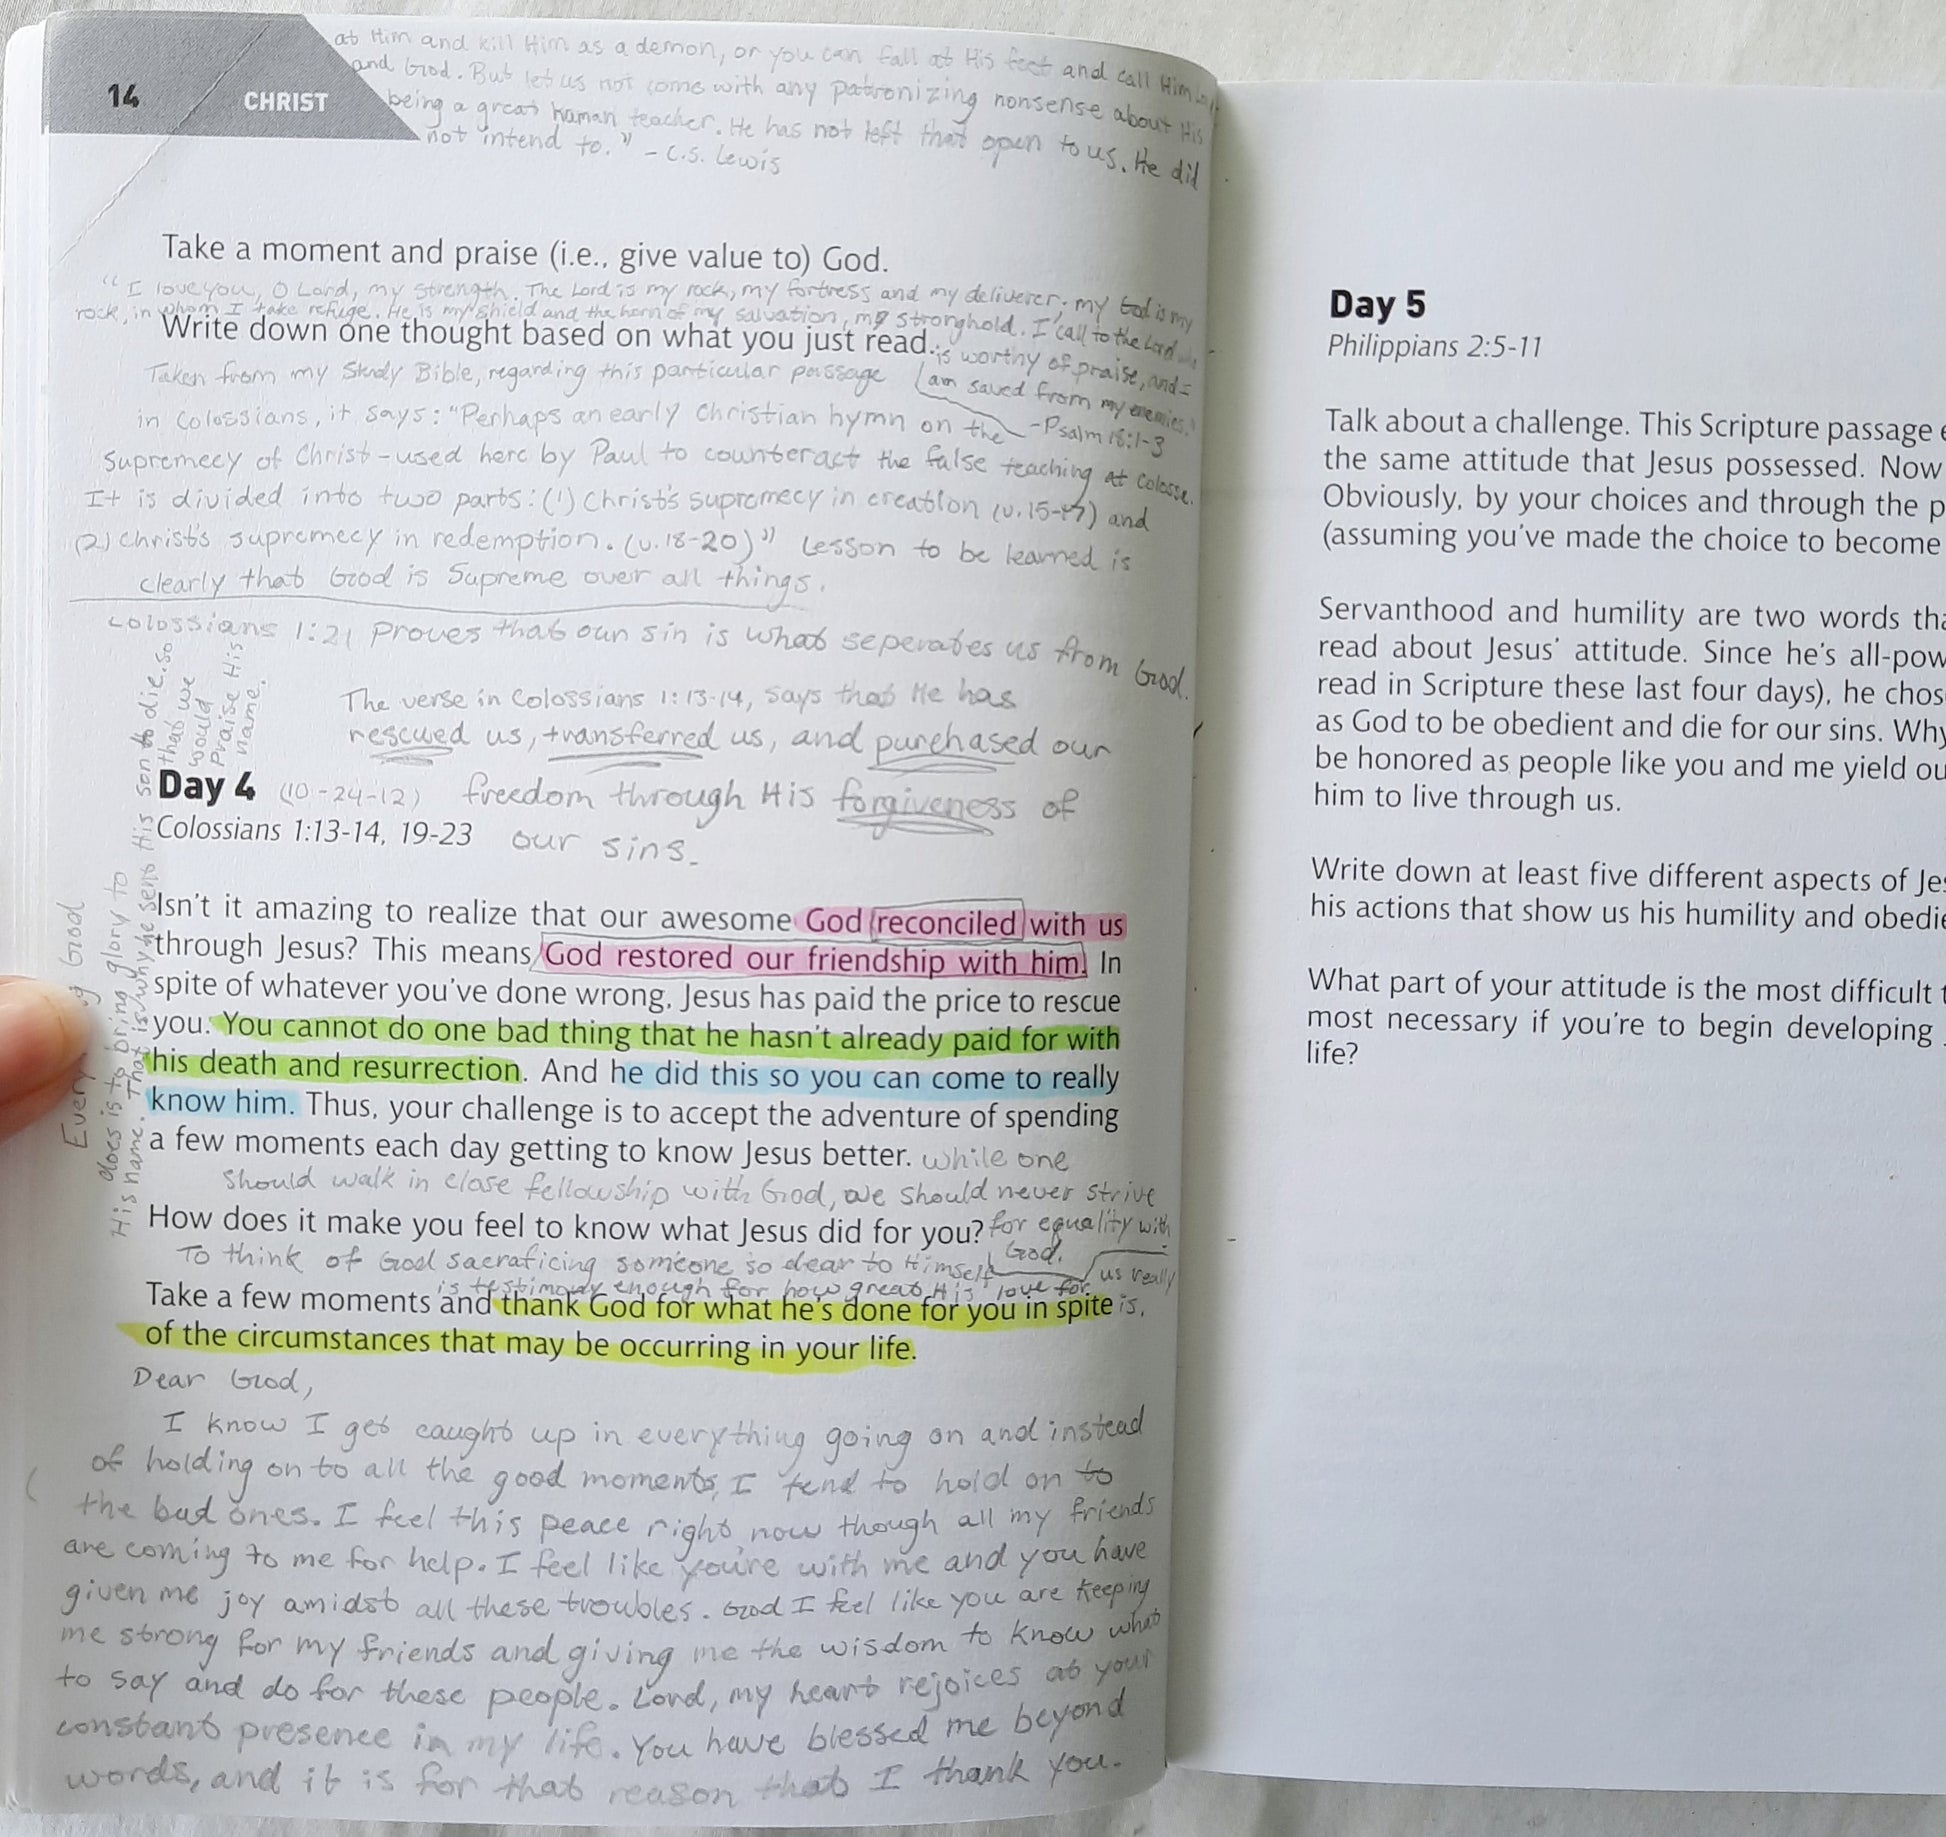 at Him and kill Him as a demon, or you can fall at His feet and call Him
and God. But let us not come with any patronizing nonsense about His
14
CHRIST
being a great human teacher. He has not left that open to us. He did
not intend to." - C.S. Lewis
Take a moment and praise (i.e., give value to) God.
"I love you, O Lord, my strength. The Lord is my rock, my fortress and my deliverer; my God is my
rock, in whom I take refuge. He is my shield and the horn of my salvation, my stronghold. I call to the Lord who
is worthy of praise, and I
am saved from my enemies."
- Psalm 18:1-3
Write down one thought based on what you just read.
Taken from my Study Bible, regarding this particular passage
in Colossians, it says: "Perhaps an early Christian hymn on the
Supremecy of Christ - used here by Paul to counteract the false teaching at Colosse.
It is divided into two parts: (1) Christ's supremecy in creation (v. 15-17) and
(2) Christ's supremecy in redemption. (v. 18-20)" Lesson to be learned is
clearly that God is Supreme over all things.
Colossians 1:21 proves that our sin is what seperates us from God.
The verse in Colossians 1:13-14, says that He has
rescued us, transferred us, and purchased our
freedom through His forgiveness of
our sins.
Day 4 (10-24-12)
Colossians 1:13-14, 19-23
Isn't it amazing to realize that our awesome God reconciled with us
through Jesus? This means God restored our friendship with him. In
spite of whatever you've done wrong, Jesus has paid the price to rescue
you. You cannot do one bad thing that he hasn't already paid for with
his death and resurrection. And he did this so you can come to really
know him. Thus, your challenge is to accept the adventure of spending
a few moments each day getting to know Jesus better.
while one
should walk in close fellowship with God, we should never strive
for equality with
God.
How does it make you feel to know what Jesus did for you?
To think of God sacraficing someone so dear to Himself
is testimony enough for how great His love for
us really
is.
Take a few moments and thank God for what he's done for you in spite
of the circumstances that may be occurring in your life.
Dear God,
I know I get caught up in everything going on and instead
of holding on to all the good moments, I tend to hold on to
the bad ones. I feel this peace right now though all my friends
are coming to me for help. I feel like you're with me and you have
given me joy amidst all these troubles. God I feel like you are keeping
me strong for my friends and giving me the wisdom to know what
to say and do for these people. Lord, my heart rejoices at your
constant presence in my life. You have blessed me beyond
words, and it is for that reason that I thank you.
God
does is to bring glory to
His name. That is why he sent His son to die. So
that we
would
Praise His
name.
Day 5
Philippians 2:5-11
Talk about a challenge. This Scripture passage
the same attitude that Jesus possessed. Now
Obviously, by your choices and through the p
(assuming you've made the choice to become
Servanthood and humility are two words tha
read about Jesus' attitude. Since he's all-pow
read in Scripture these last four days), he chos
as God to be obedient and die for our sins. Why
be honored as people like you and me yield ou
him to live through us.
Write down at least five different aspects of Jes
his actions that show us his humility and obedie
What part of your attitude is the most difficult t
most necessary if you're to begin developing
life?